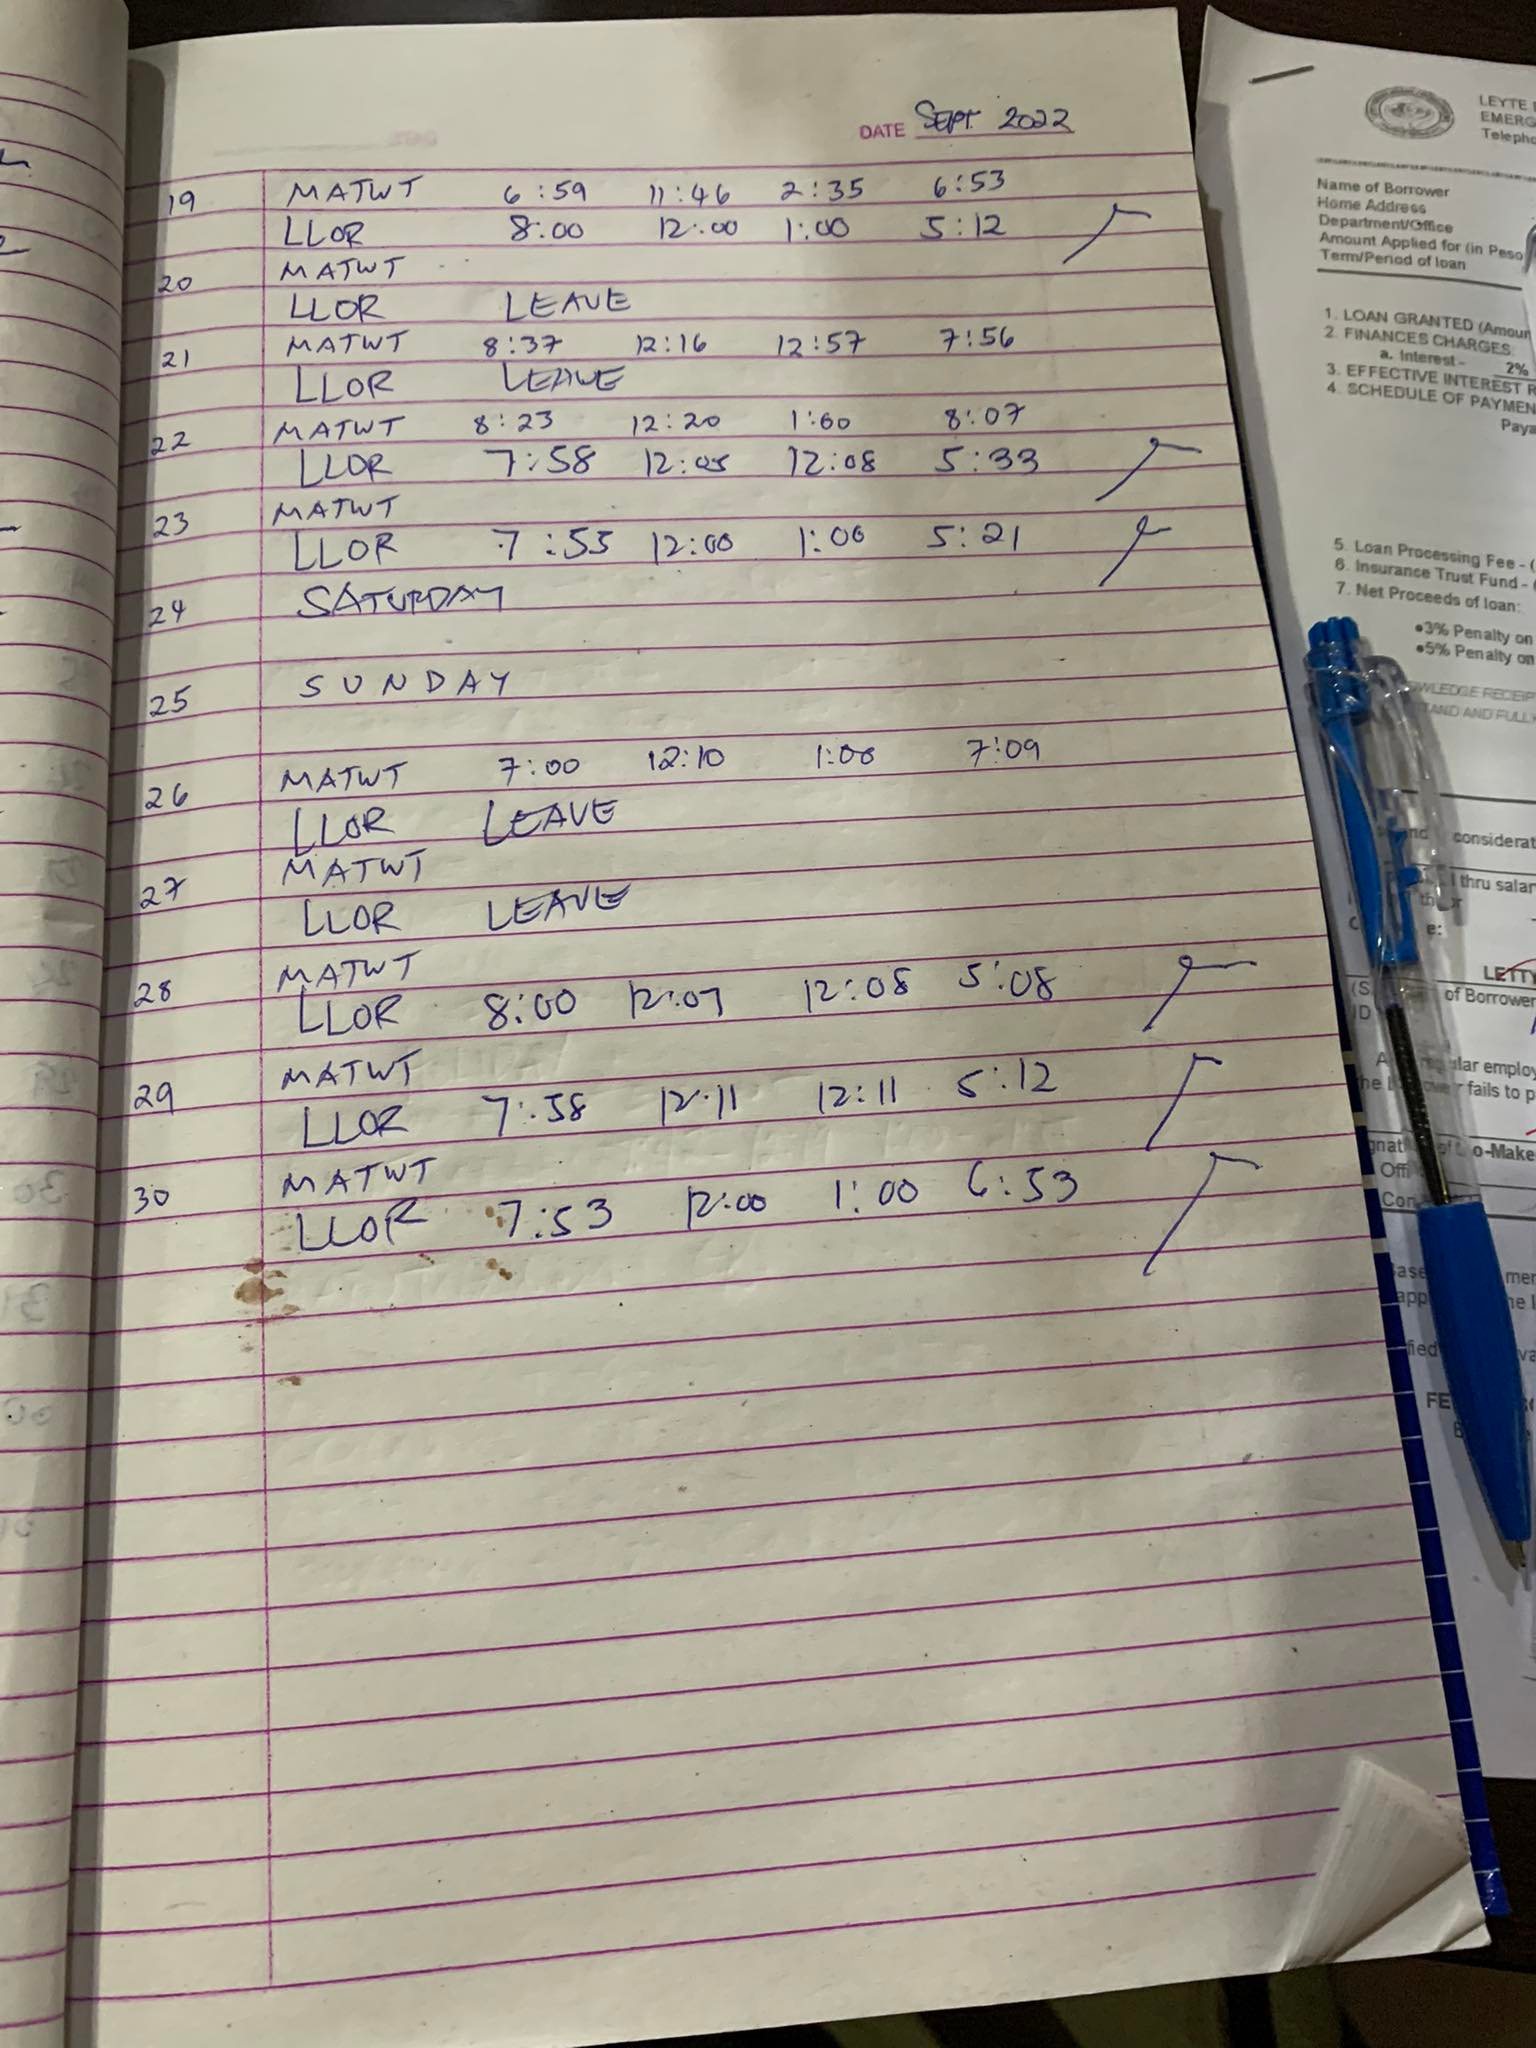 DATE SEPT. 2022
19 MATWT 6:59 11:46 2:35 6:53
LLOR 8:00 12:00 1:00 5:12
20 MATWT
LLOR LEAVE
21 MATWT 8:37 12:16 12:57 7:56
LLOR LEAVE
22 MATWT 8:23 12:20 1:00 8:07
LLOR 7:58 12:05 12:08 5:33
23 MATWT
LLOR 7:53 12:00 1:00 5:21
24 SATURDAY
25 SUNDAY
26 MATWT 7:00 12:10 1:00 7:09
LLOR LEAVE
27 MATWT
LLOR LEAVE
28 MATWT
LLOR 8:00 12:07 12:08 5:08
29 MATWT
LLOR 7:58 12:11 12:11 5:12
30 MATWT
LLOR 7:53 12:00 1:00 6:53
LEYTE
EMERG
Telepho
Name of Borrower
Home Address
Department/Office
Amount Applied for (in Peso
Term/Period of loan
1. LOAN GRANTED (Amoun
2. FINANCES CHARGES:
a. Interest - 2%
3. EFFECTIVE INTEREST R
4. SCHEDULE OF PAYMEN
Paya
5. Loan Processing Fee - (
6. Insurance Trust Fund - (
7. Net Proceeds of loan:
•3% Penalty on
•5% Penalty on
WLEDGE RECEIP
TAND AND FULLY
considerat
thru salar
e:
LETTY
of Borrower
lar employ
fails to p
o-Make